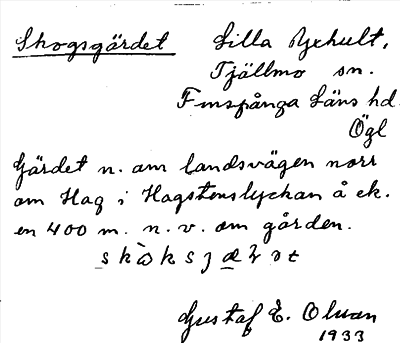 Skogsgärdet Lilla Yxhult,
Tjällmo sn.
Finspånga Läns hd.
Ögl
Gärdet n. om landsvägen norr
om Hag i Hagstenslyckan å ek.
en 400 m. n. v. om gården.
Gustaf E. Olsson
1933